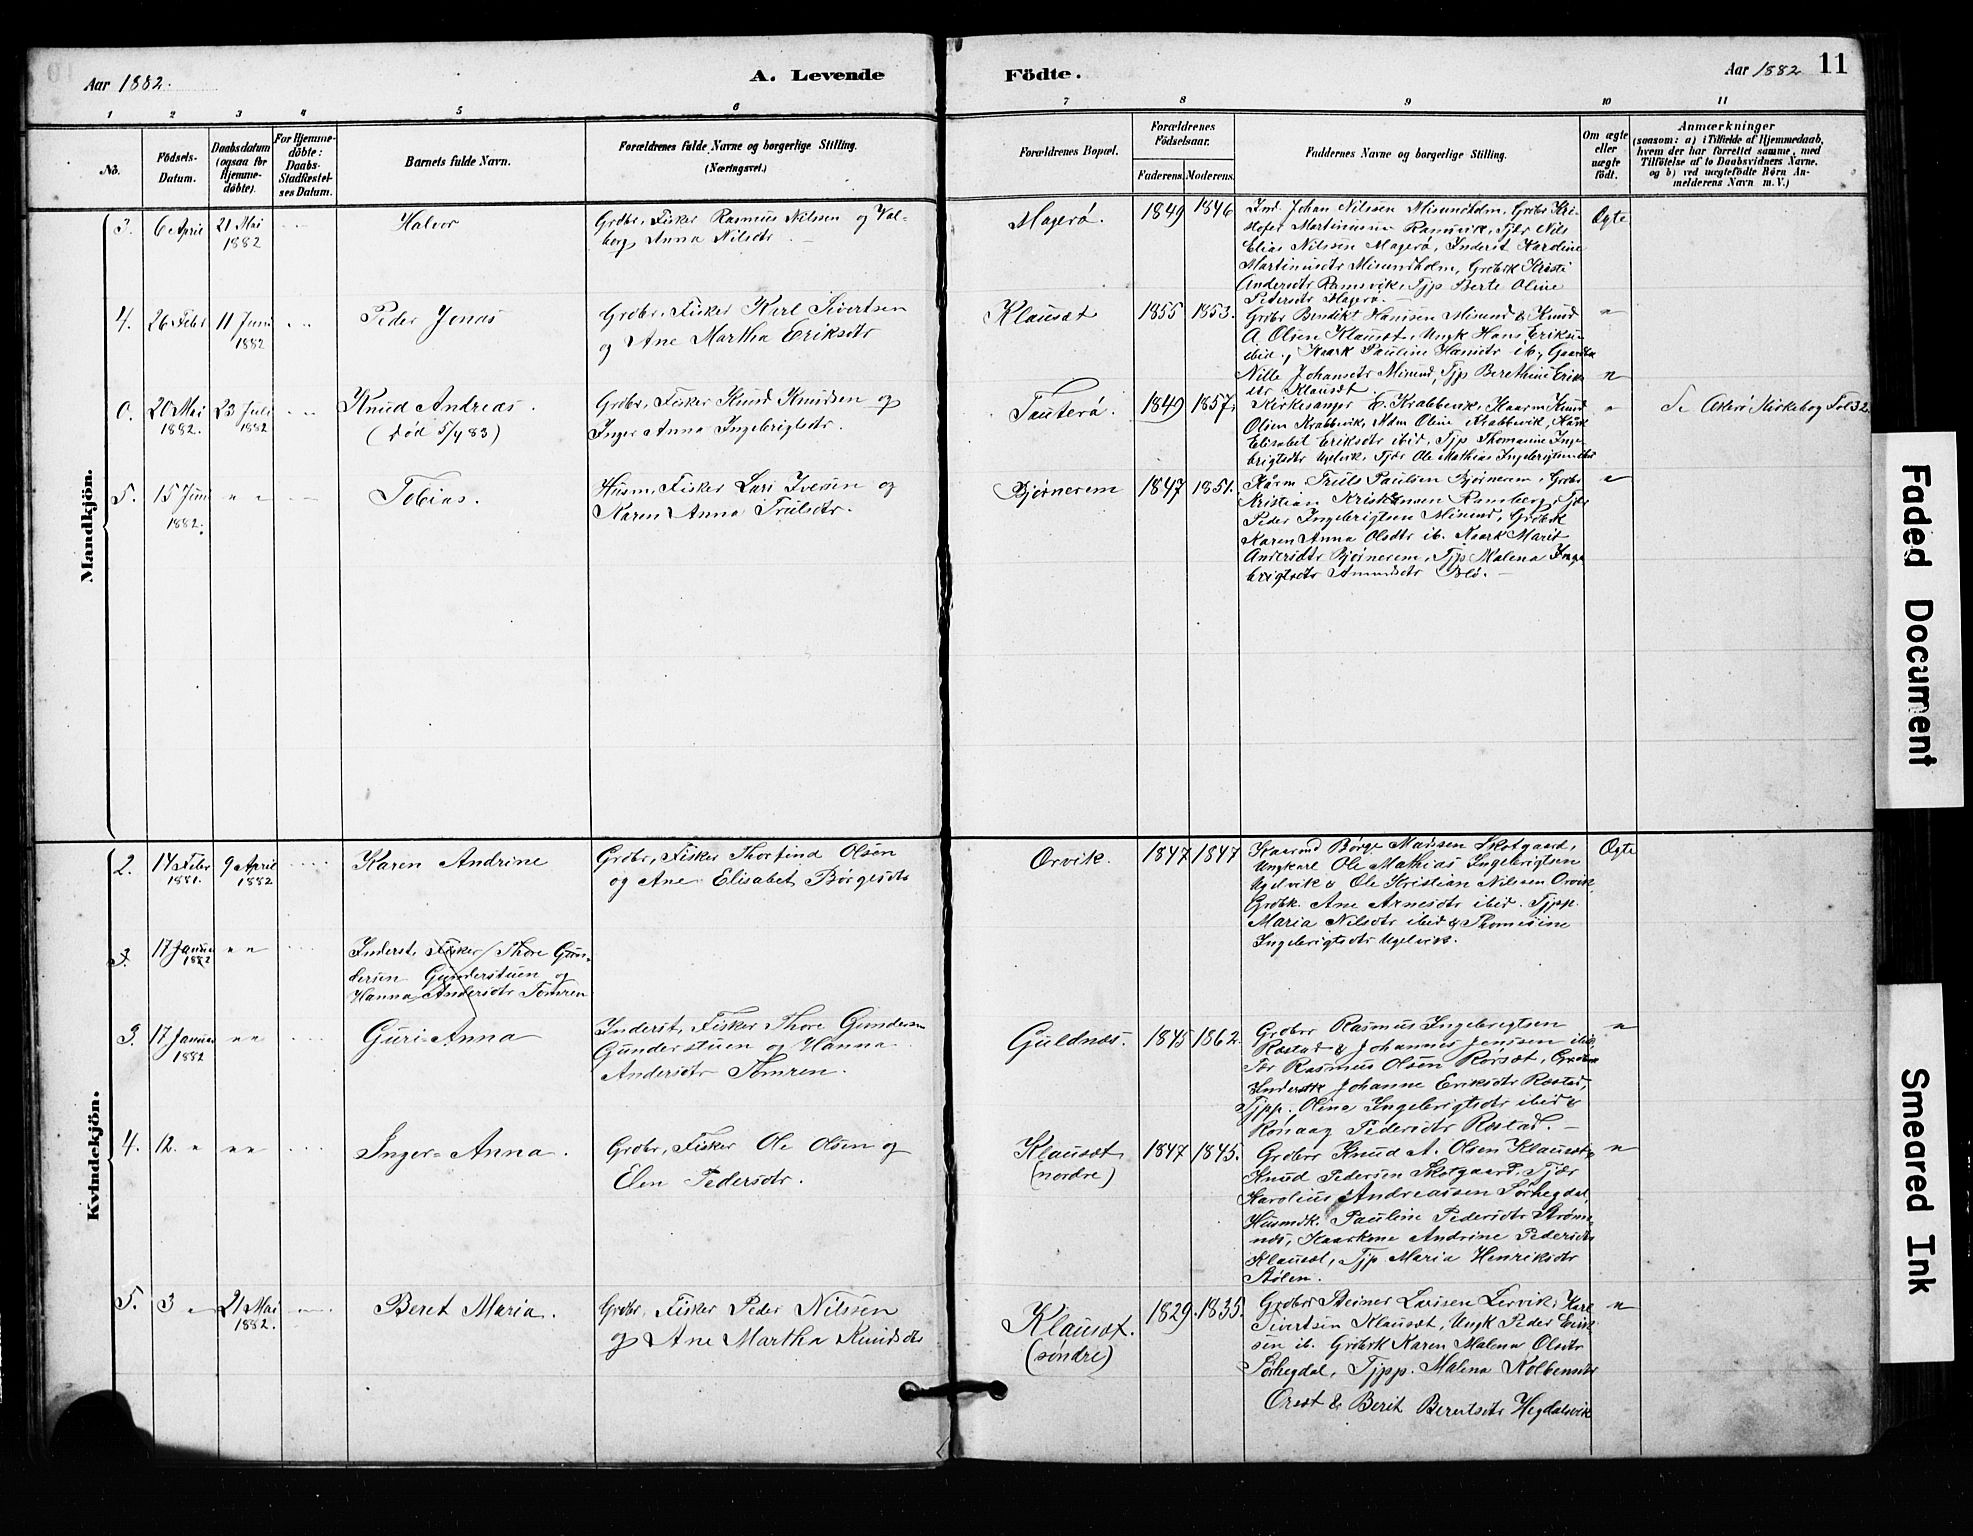 Aar 1882.
A. Levende
Födte.
Aar 1882
11
1 2 3 4 5 6 7 8 9 10 11
No.
Födsels-
Datum.
Daabsdatum
(ogsaa for
Hjemme-
döbte).
For Hjemme-
döbte:
Daabs-
Stadfæstel-
ses Datum.
Barnets fulde Navn.
Forældrenes fulde Navne og borgerlige Stilling.
(Næringsvei.)
Forældrenes Bopæl.
Forældrenes
Födselsaar.
Faderens.
Moderens.
Faddernes Navne og borgerlige Stilling.
Om ægte
eller
uægte
födt.
Anmærkninger
(saasom: a) i Tilfælde af Hjemmedaab,
hvem der har forrettet samme, med
Tilföielse af to Daabsvidners Navne,
og b) ved uægtefödte Börn An-
melderens Navn m. V.)
Mandkjön.
3. 6 April 21 Mai
1882
Halvor
Grdbr, Fisker Rasmus Nilsen og Val-
borg Anna Nilsdtr.
Magerö.
1849 1846
Ind. Johan Nilssen Misundholm, Grdbr Kri-
stofer Martinussen Ramsvik, Tjdr Nils
Elias Nilssen Magerö, Inderst Karoline
Martinusdtr Misundholm, Grdbrk Kristi
Andersdtr Ramsvik, Tjp Berte Oline
Pedersdtr Magerö.
Ægte
4. 26 Febr 11 Juni
1882
Peder Jonas
Grdbr, Fisker Karl Sivertsen
og Ane Martha Eriksdtr
Klausæt
1855 1853.
Grdbr Bendikt Hansen Misund & Knud
A. Olsen Klausæt, Ungk Hans Eriks-
ibid., Kaark Pauline Hansdtr ib,
Nille Johansdtr Misund, Tjp Berethine Erik-
dtr Klausæt.
0. 20 Mai 23 Juli
1882. 1882
Knud Andreas.
(död 5/4 83)
Grdbr, Fisker Knud Knudsen og
Inger Anna Ingebrigtsdtr.
Tauterö.
1849 1857.
Kirkesanger E. Krabbevik, Kaarm Knud
Olsen Krabbevik, Mdm Oline Krabbevik, Kark
Elisabet Eriksdtr ibid, Tjp Thomasine Inge-
brigtsdtr Ugelvik, Tjdr Ole Mathias Ingebrigtsen
Se Akerö Kirkebog Fol 32
5. 15 Juni " "
1882.
Tobias.
Husm, Fisker Lars Iversen og
Karen Anna Trulsdtr.
Bjørnerem
1847 1851.
Kårm Truls Paulsen Bjørnerem, Grdbr
Kristian Kristensen Ramberg, Tjdr
Peder Ingebrigtsen Misund, Grdbrk
Karen Anna Olsdtr ib. Kaark Marit
Andersdtr Bjørnerem, Tjp Malena Inge
brigtsdtr Amundsdtr
Kvindekjön.
2. 14 Febr 9 April
1881. 1882
Karen Andrine
Grdbr, Fisker Thorfind Olsen
og Ane Elisabet Börgesdtr
Orvik.
1847 1847
Kaarmd Börge Madsen Skotgaard,
Ungkarl Ole Mathias Ingebrigtsen
Ugelvik & Ole Kristian Nilssen Orvik,
Grdbk. Ane Arnesdtr ibid. Tjpp.
Maria Nilsdtr ibid & Thomesine
Ingebrigtsdtr Ugelvik.
Ægte
3. 17 Januar " "
1882
Inderst, Fisker Thore Gun-
dersen Gunderstuen og
Hanna Andersdtr Tomren
3. 17 Januar " "
1882
Guri-Anna
Inderst, Fisker Thore Gundersen
Gunderstuen og Hanna
Andersdtr Tomren.
Guldnæs.
1845 1862.
Grdbr Rasmus Ingebrigtsen
Røstad & Johannes Jenssen ibid,
Tdr Rasmus Olsen Rörsæt,
Inderstk Johanne Eriksdtr Røstad,
Tjpp. Olina Ingebrigtsdtr ibid &
Rönaag Pedersdtr Røstad.
4. 12. " " "
Inger-Anna.
Grdbr, Fisker Ole Olsen og
Elen Pedersdtr.
Klausæt
(nordre)
1847 1845.
Grdbr Knud A. Olsen Klausæt,
Knud Pedersen Skotgaard, Tjdr
Karolius Andreassen Sörhegdal,
Husmdk. Pauline Pedersdtr Strøm-
næs, Kaarkone Andrine Pedersdtr
Klausæt, Tjp Maria Henriksdtr
Stölen.
5. 3 " 21 Mai
1882.
Beret Maria.
Grdbr, Fisker Peder Nilssen
og Ane Martha Knudsdtr
Klausæt.
(søndre)
1829. 1835.
Grdbr Steiner Larssen Lervik, Karl
Sivertsen Klausæt, Ungk Peder Erik-
sen ib. Grdbrk Karen Malena Olsdtr
Sörhegdal, Tjpp. Malena Kolbensdtr
Orsæt & Berit Berentsdtr Hegdalsvik
Faded Document
Smeared Ink